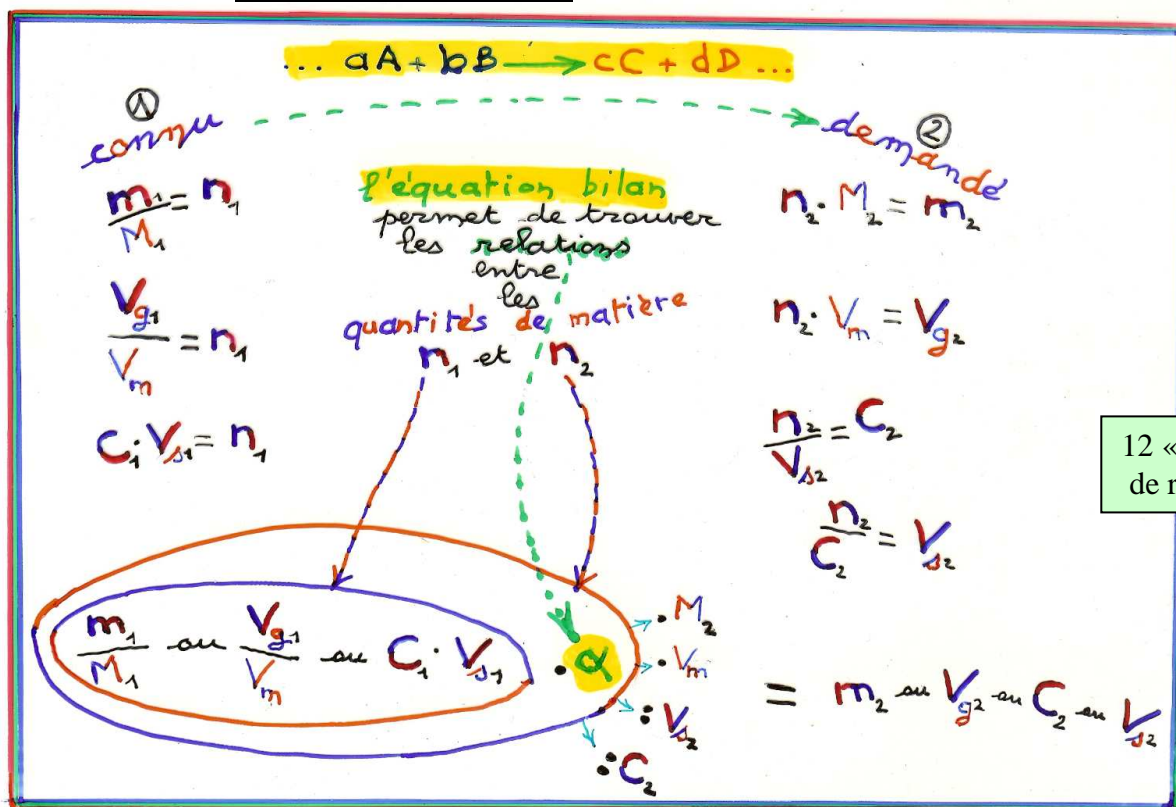 ... aA + bB → cC + dD ...
①
connu
②
demandé
m₁/M₁ = n₁
Vg₁/Vm = n₁
C₁·Vs₁ = n₁
l'équation bilan
permet de trouver
les relations
entre
les
quantités de matière
n₁ et n₂
n₂·M₂ = m₂
n₂·Vm = Vg₂
n₂/Vs₂ = C₂
n₂/C₂ = Vs₂
12 «
m₁/M₁ ou Vg₁/Vm ou C₁·Vs₁ · α
·M₂
·Vm
:Vs₂
:C₂
= m₂ ou Vg₂ ou C₂ ou Vs₂